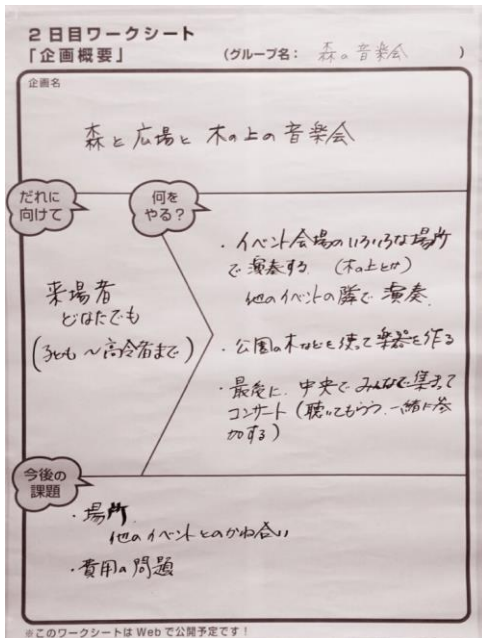 ２日目ワークシート
「企画概要」 （グループ名： 森の音楽会 ）
企画名
森と広場と木の上の音楽会
だれに
向けて
何を
やる？
来場者
どなたでも
(子ども〜高令者まで)
・イベント会場のいろいろな場所
で演奏する (木の上とか)
他のイベントの隣で演奏
・公園の木などを使って楽器を作る
・最後に、中央でみんなで集まって
コンサート (聴いてもらう、一緒に参
加する)
今後の
課題
・場所
他のイベントとのかね合い
・費用の問題
※このワークシートはWebで公開予定です！